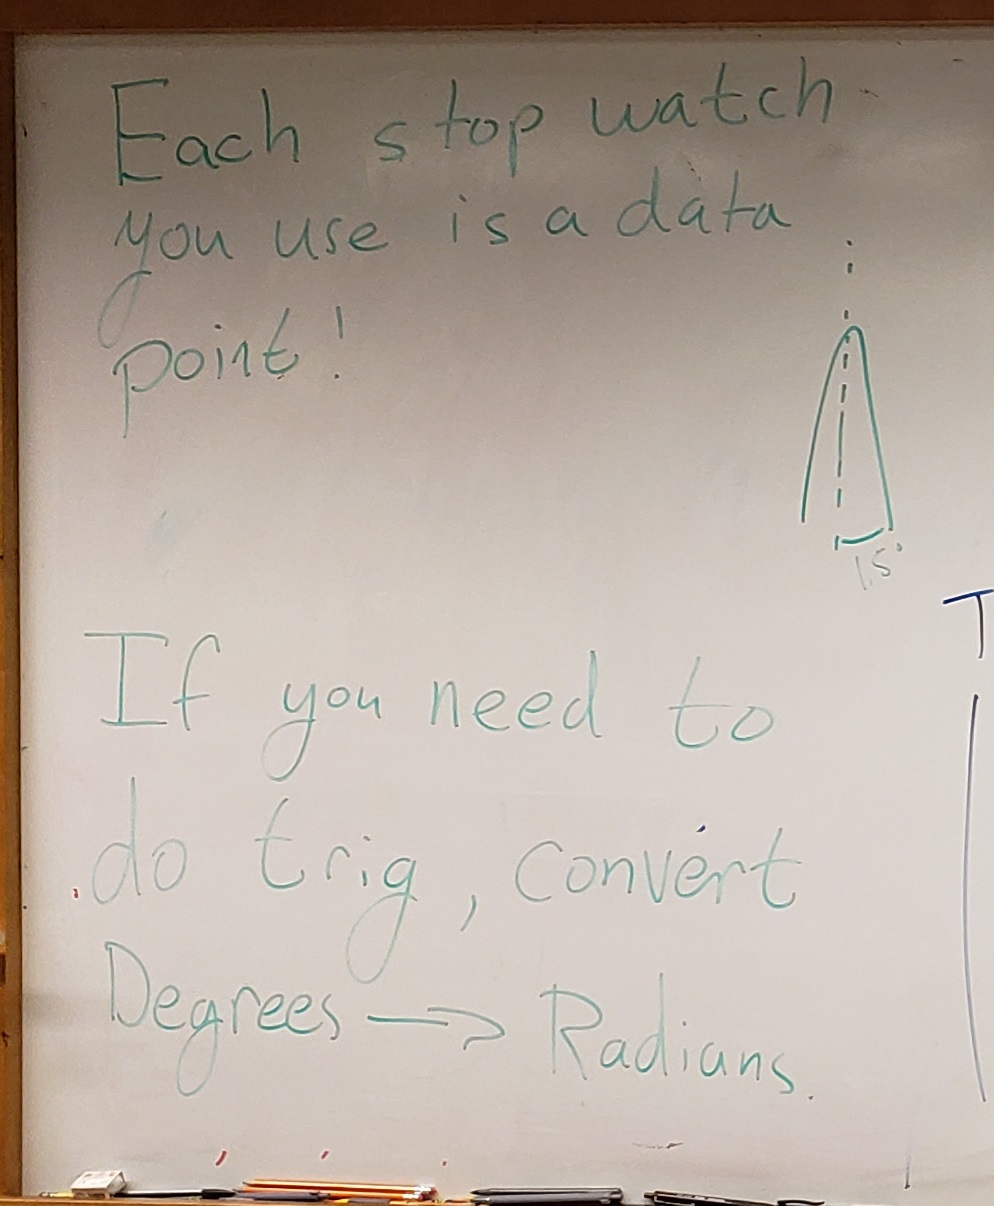 Each stop watch
you use is a data
point!
1.5°
T
If you need to
do trig, convert
Degrees → Radians.